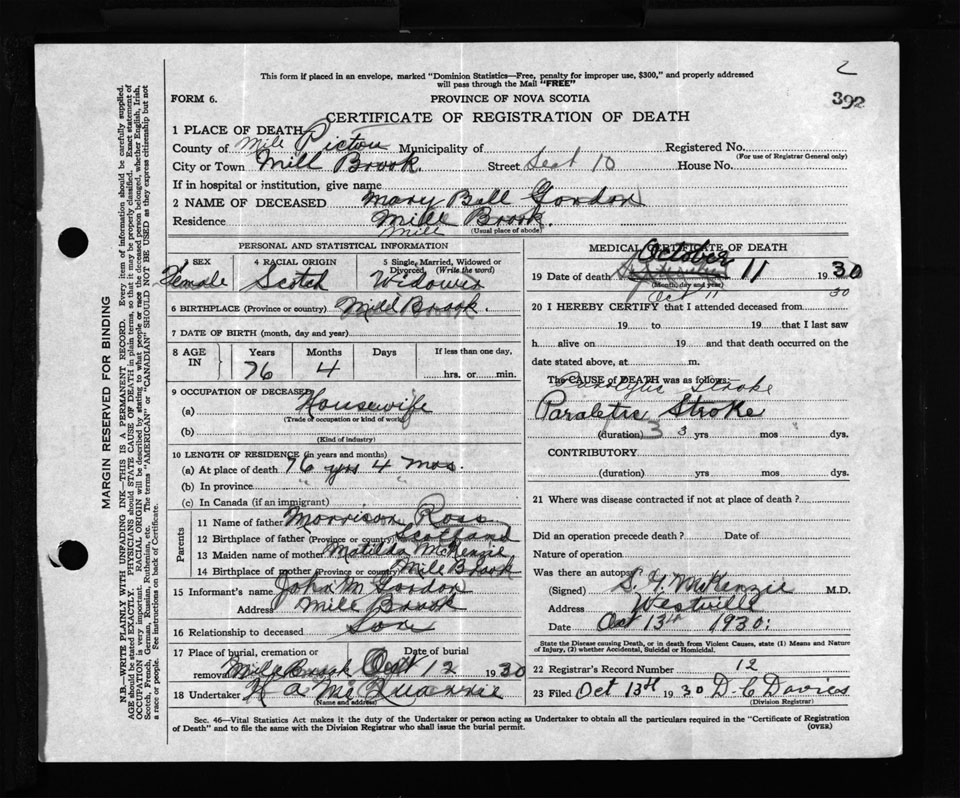 2
392
This form if placed in an envelope, marked "Dominion Statistics—Free, penalty for improper use, $300," and properly addressed
will pass through the Mail "FREE"
FORM 6.
PROVINCE OF NOVA SCOTIA
CERTIFICATE OF REGISTRATION OF DEATH
1 PLACE OF DEATH
County of Pictou Municipality of Registered No.
(For use of Registrar General only)
City or Town Mill Brook. Street Sect 10 House No.
If in hospital or institution, give name
2 NAME OF DECEASED Mary Bell Gordon
Residence Mill Brook.
Mill (Usual place of abode)
PERSONAL AND STATISTICAL INFORMATION
3 SEX
Female
4 RACIAL ORIGIN
Scotch
5 Single, Married, Widowed or
Divorced, (Write the word)
Widower
6 BIRTHPLACE (Province or country) Mill Brook.
7 DATE OF BIRTH (month, day and year)
8 AGE IN
Years Months Days If less than one day,
76 4 hrs. or min.
9 OCCUPATION OF DECEASED
(a) Housewife
(Trade or occupation or kind of work)
(b)
(Kind of industry)
10 LENGTH OF RESIDENCE (in years and months)
(a) At place of death 76 yrs 4 mos.
(b) In province " "
(c) In Canada (if an immigrant)
Parents
11 Name of father Morrison Ross
12 Birthplace of father (Province or country) Scotland
13 Maiden name of mother Matilda McKenzie
14 Birthplace of mother (Province or country) Mill Brook
15 Informant's name John M Gordon
Address Mill Brook
16 Relationship to deceased Son
17 Place of burial, cremation or Date of burial
removal Mill Brook Oct 12 1930
18 Undertaker
(Name and address)
MEDICAL CERTIFICATE OF DEATH
October
19 Date of death 11 1930
(Month, day and year)
Oct 11 30
20 I HEREBY CERTIFY that I attended deceased from
19 to 19 that I last saw
h alive on 19 and that death occurred on the
date stated above, at m.
The CAUSE OF DEATH was as follows:
Paralytic Stroke
Paraletic Stroke
(duration) 3 3 yrs mos dys.
CONTRIBUTORY
(duration) yrs mos dys.
21 Where was disease contracted if not at place of death?
Did an operation precede death? Date of
Nature of operation
Was there an autopsy
(Signed) S. G. McKenzie M.D.
Address Westville
Date Oct 13th 1930.
State the Disease causing Death, or in death from Violent Causes, state (1) Means and Nature
of Injury, (2) whether Accidental, Suicidal or Homicidal.
22 Registrar's Record Number 12
23 Filed Oct 13th 1930 D. C Davies
(Division Registrar)
Sec. 46—Vital Statistics Act makes it the duty of the Undertaker or person acting as Undertaker to obtain all the particulars required in the "Certificate of Registration
of Death" and to file the same with the Division Registrar who shall issue the burial permit.
(OVER)
MARGIN RESERVED FOR BINDING
N.B.—WRITE PLAINLY WITH UNFADING INK—THIS IS A PERMANENT RECORD. Every item of information should be carefully supplied.
AGE should be stated EXACTLY. PHYSICIANS should STATE CAUSE OF DEATH in plain terms, so that it may be properly classified. Exact statement of
OCCUPATION is very important. RACIAL ORIGIN will be described by stating to what people or race the deceased person belonged, whether English, Irish,
Scotch, French, German, Russian, Ruthenian, etc. The terms "AMERICAN" or "CANADIAN" SHOULD NOT BE USED as they express citizenship but not
a race or people. See instructions on back of Certificate.